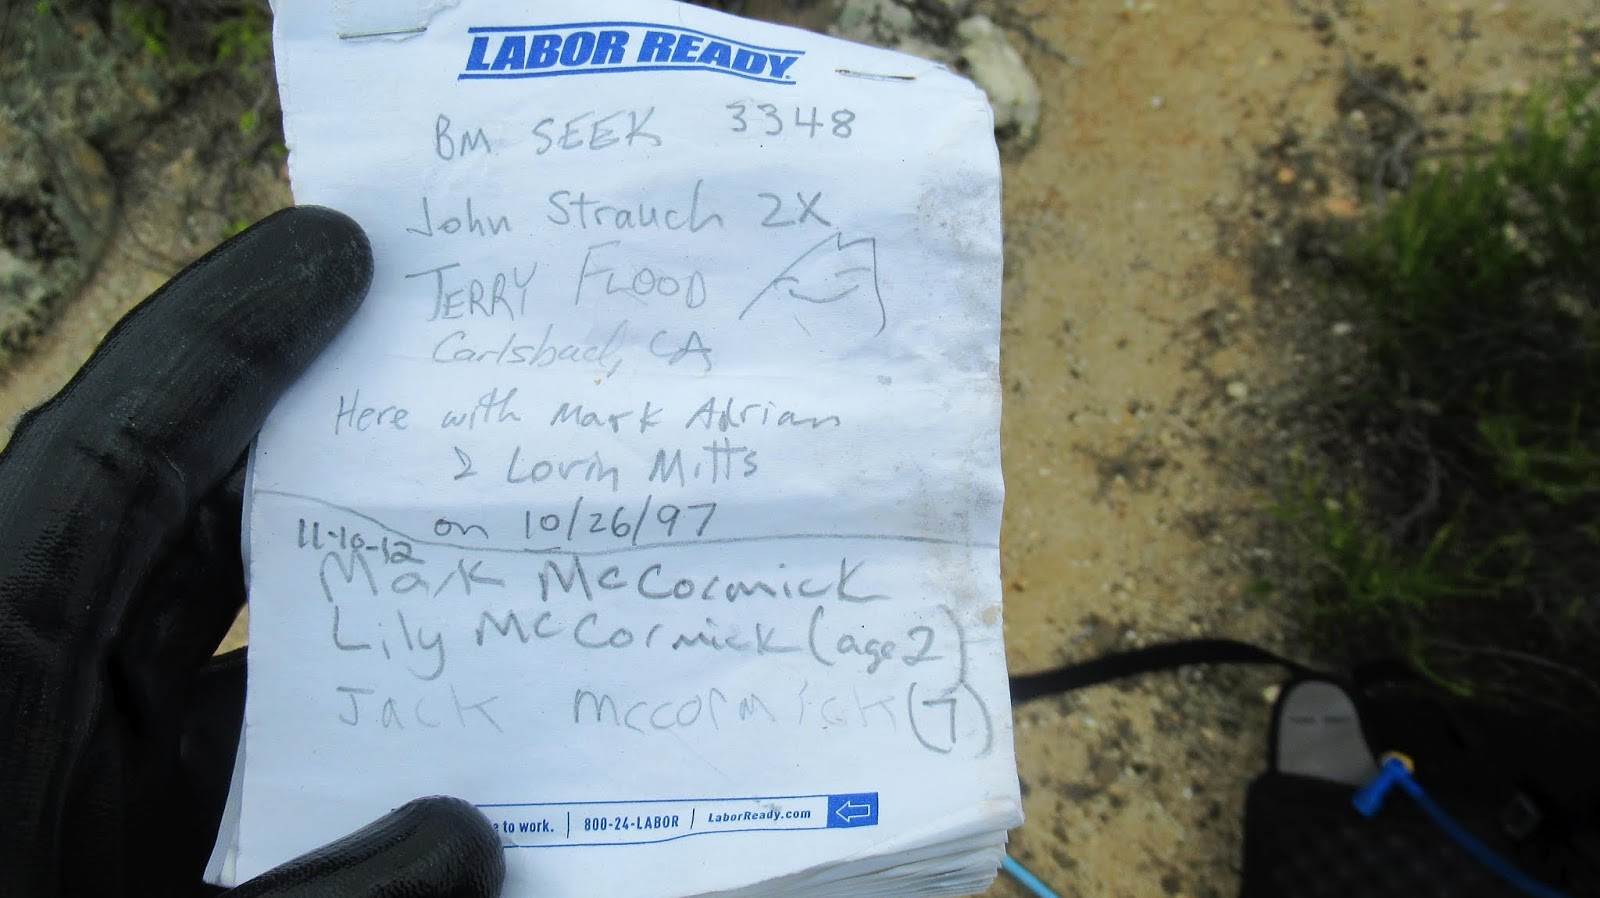 LABOR READY
BM SEEK 3348
John Strauch 2X
JERRY FLOOD
Carlsbad, CA
Here with Mark Adrian
& Lorin Mitts
on 10/26/97
11-10-12
Mark McCormick
Lily McCormick (age 2)
Jack mccormick (7)
e to work. | 800-24-LABOR | LaborReady.com